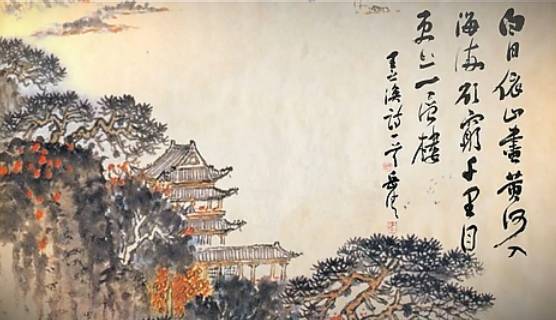 白日依山盡黄河入
海流欲窮千里目
更上一層樓
王之渙詩一首